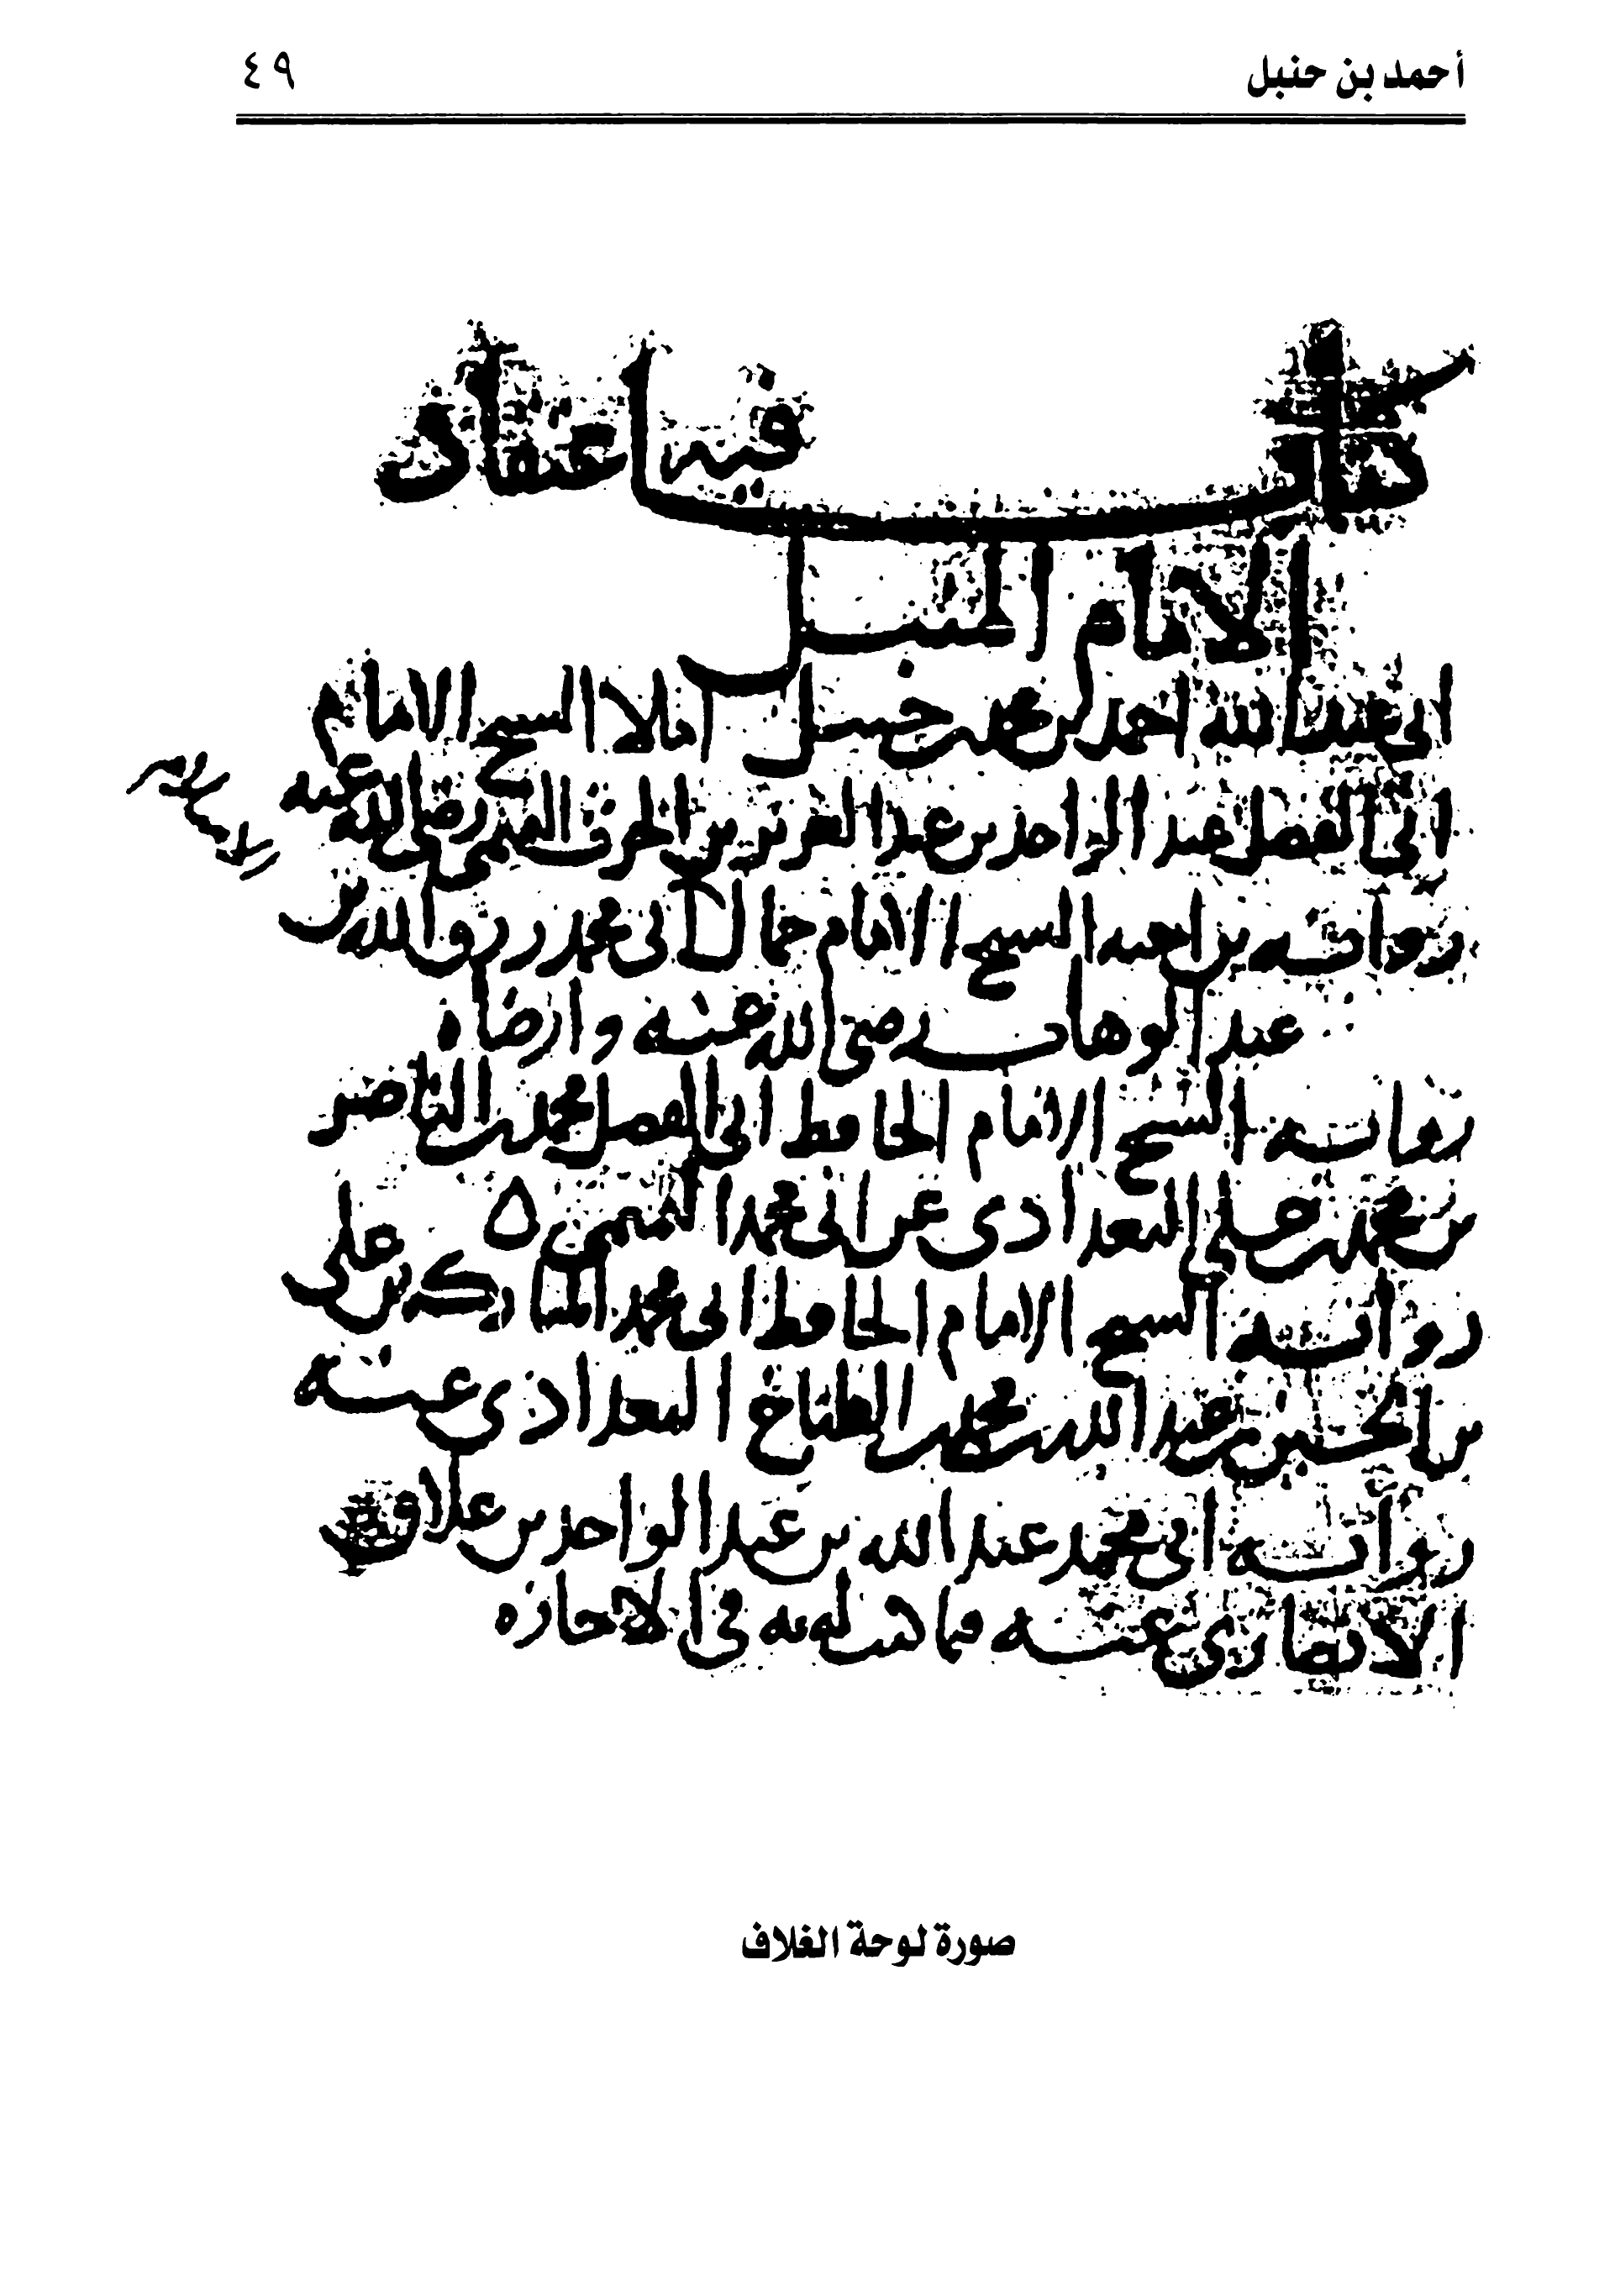 أحمد بن حنبل
٤٩
كتاب فيه اعتقاد
الامام المبجل
ابي عبد الله احمد بن محمد بن حنبل املا الشيخ الامام
ابي الفضل عبد الواحد بن عبد العزيز بن الحرث التميمي رضي الله عنه
رواية بن اخيه الشيخ الامام جمال ابي محمد رزق الله بن
عبد الوهاب رضي الله عنه وارضاه
رواية الشيخ الامام الحافظ ابي الفضل محمد بن الناصر
بن محمد بن علي البغدادي عن ابي محمد التميمي ه
رواية الشيخ الامام الحافظ ابي محمد المبارك بن علي
بن الحسين بن عبد الله بن محمد الطباخ البغدادي عنه
رواية ابي محمد عبد الله بن عبد الواحد بن علاق
الانصاري عنه فما كتب له به في الاجازه
صورة لوحة الغلاف